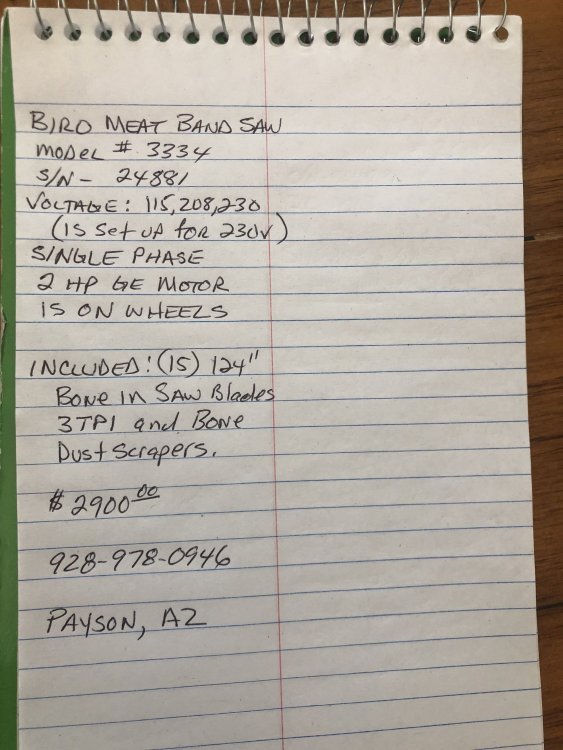 BIRO MEAT BAND SAW
MODEL # 3334
S/N - 24881
VOLTAGE: 115,208,230
(IS Set UP for 230V)
SINGLE PHASE
2 HP GE MOTOR
IS ON WHEELS
INCLUDED: (15) 124"
Bone in SAW Blades
3TPI and Bone
Dust Scrapers.
$2900.00
928-978-0946
PAYSON, AZ